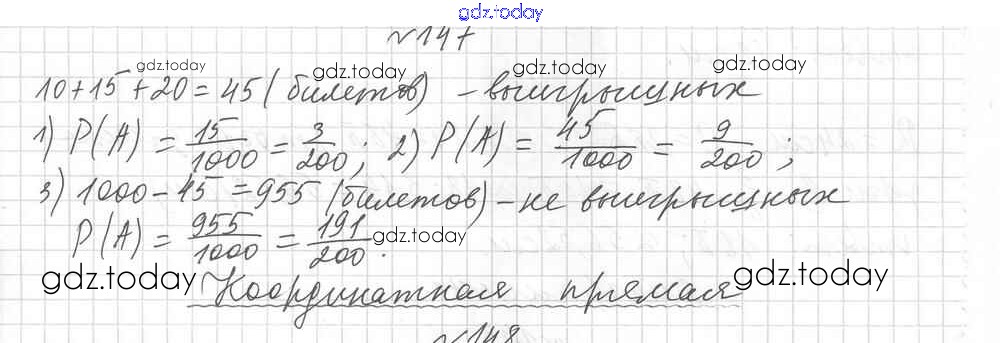 gdz.today
№147
10+15+20=45 (билетов) - выигрышных
1) P(A) = 15/1000 = 3/200; 2) P(A) = 45/1000 = 9/200;
3) 1000-45=955 (билетов) - не выигрышных
P(A) = 955/1000 = 191/200.
Координатная прямая
№148
gdz.today
gdz.today
gdz.today
gdz.today
gdz.today
gdz.today
gdz.today